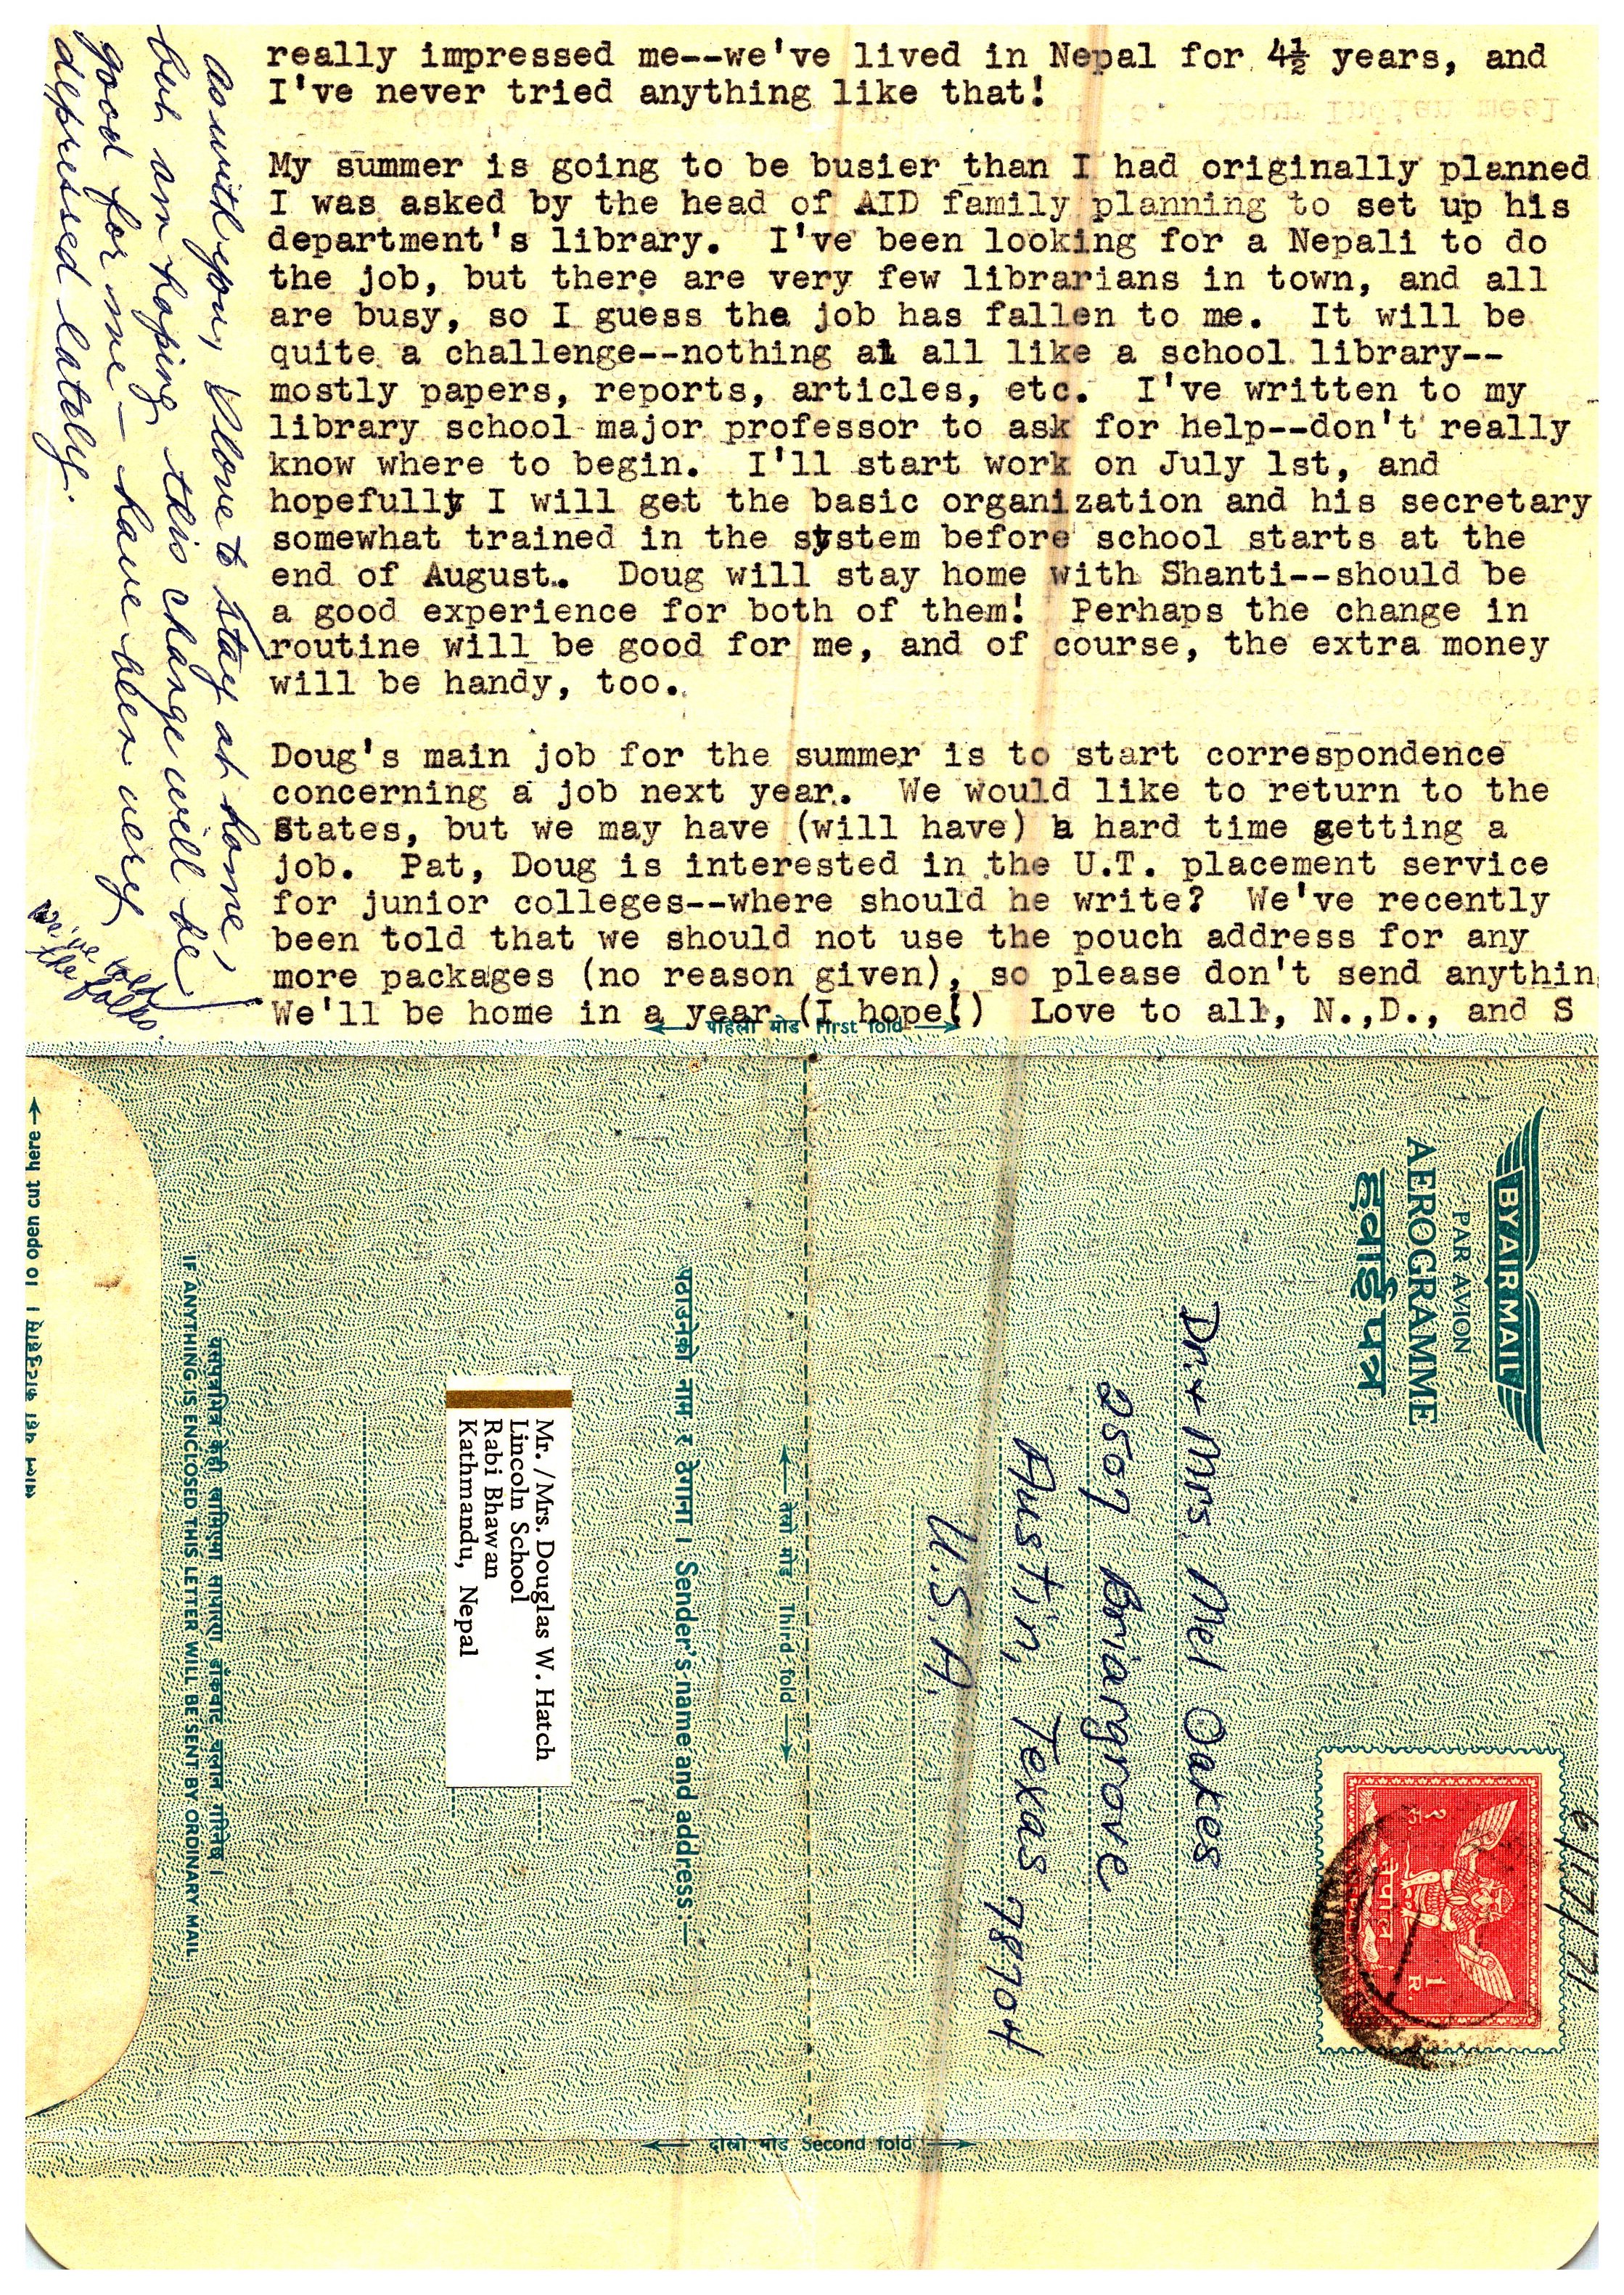 really impressed me--we've lived in Nepal for 4½ years, and
I've never tried anything like that!
My summer is going to be busier than I had originally planned
I was asked by the head of AID family planning to set up his
department's library. I've been looking for a Nepali to do
the job, but there are very few librarians in town, and all
are busy, so I guess the job has fallen to me. It will be
quite a challenge--nothing at all like a school library--
mostly papers, reports, articles, etc. I've written to my
library school major professor to ask for help--don't really
know where to begin. I'll start work on July 1st, and
hopefully I will get the basic organization and his secretary
somewhat trained in the system before school starts at the
end of August. Doug will stay home with Shanti--should be
a good experience for both of them! Perhaps the change in
routine will be good for me, and of course, the extra money
will be handy, too.
Doug's main job for the summer is to start correspondence
concerning a job next year. We would like to return to the
States, but we may have (will have) a hard time getting a
job. Pat, Doug is interested in the U.T. placement service
for junior colleges--where should he write? We've recently
been told that we should not use the pouch address for any
more packages (no reason given), so please don't send anythin
We'll be home in a year (I hope!) Love to all, N.,D., and S
As with you, I love to stay at home,
but am hoping this change will be
good for me - have been very
depressed lately.
We've told
the folks.
पहिलो मोड First fold
BY AIR MAIL
PAR AVION
AEROGRAMME
हवाई पत्र
6/17/71
नेपाल
1 R.
Dr. & Mrs. Mel Oakes
2507 Briargrove
Austin, Texas 78704
U.S.A.
तेस्रो मोड Third fold
पठाउनेको नाम र ठेगाना । Sender's name and address:—
Mr./Mrs. Douglas W. Hatch
Lincoln School
Rabi Bhawan
Kathmandu, Nepal
IF ANYTHING IS ENCLOSED THIS LETTER WILL BE SENT BY ORDINARY MAIL
To open cut here
दोस्रो मोड Second fold